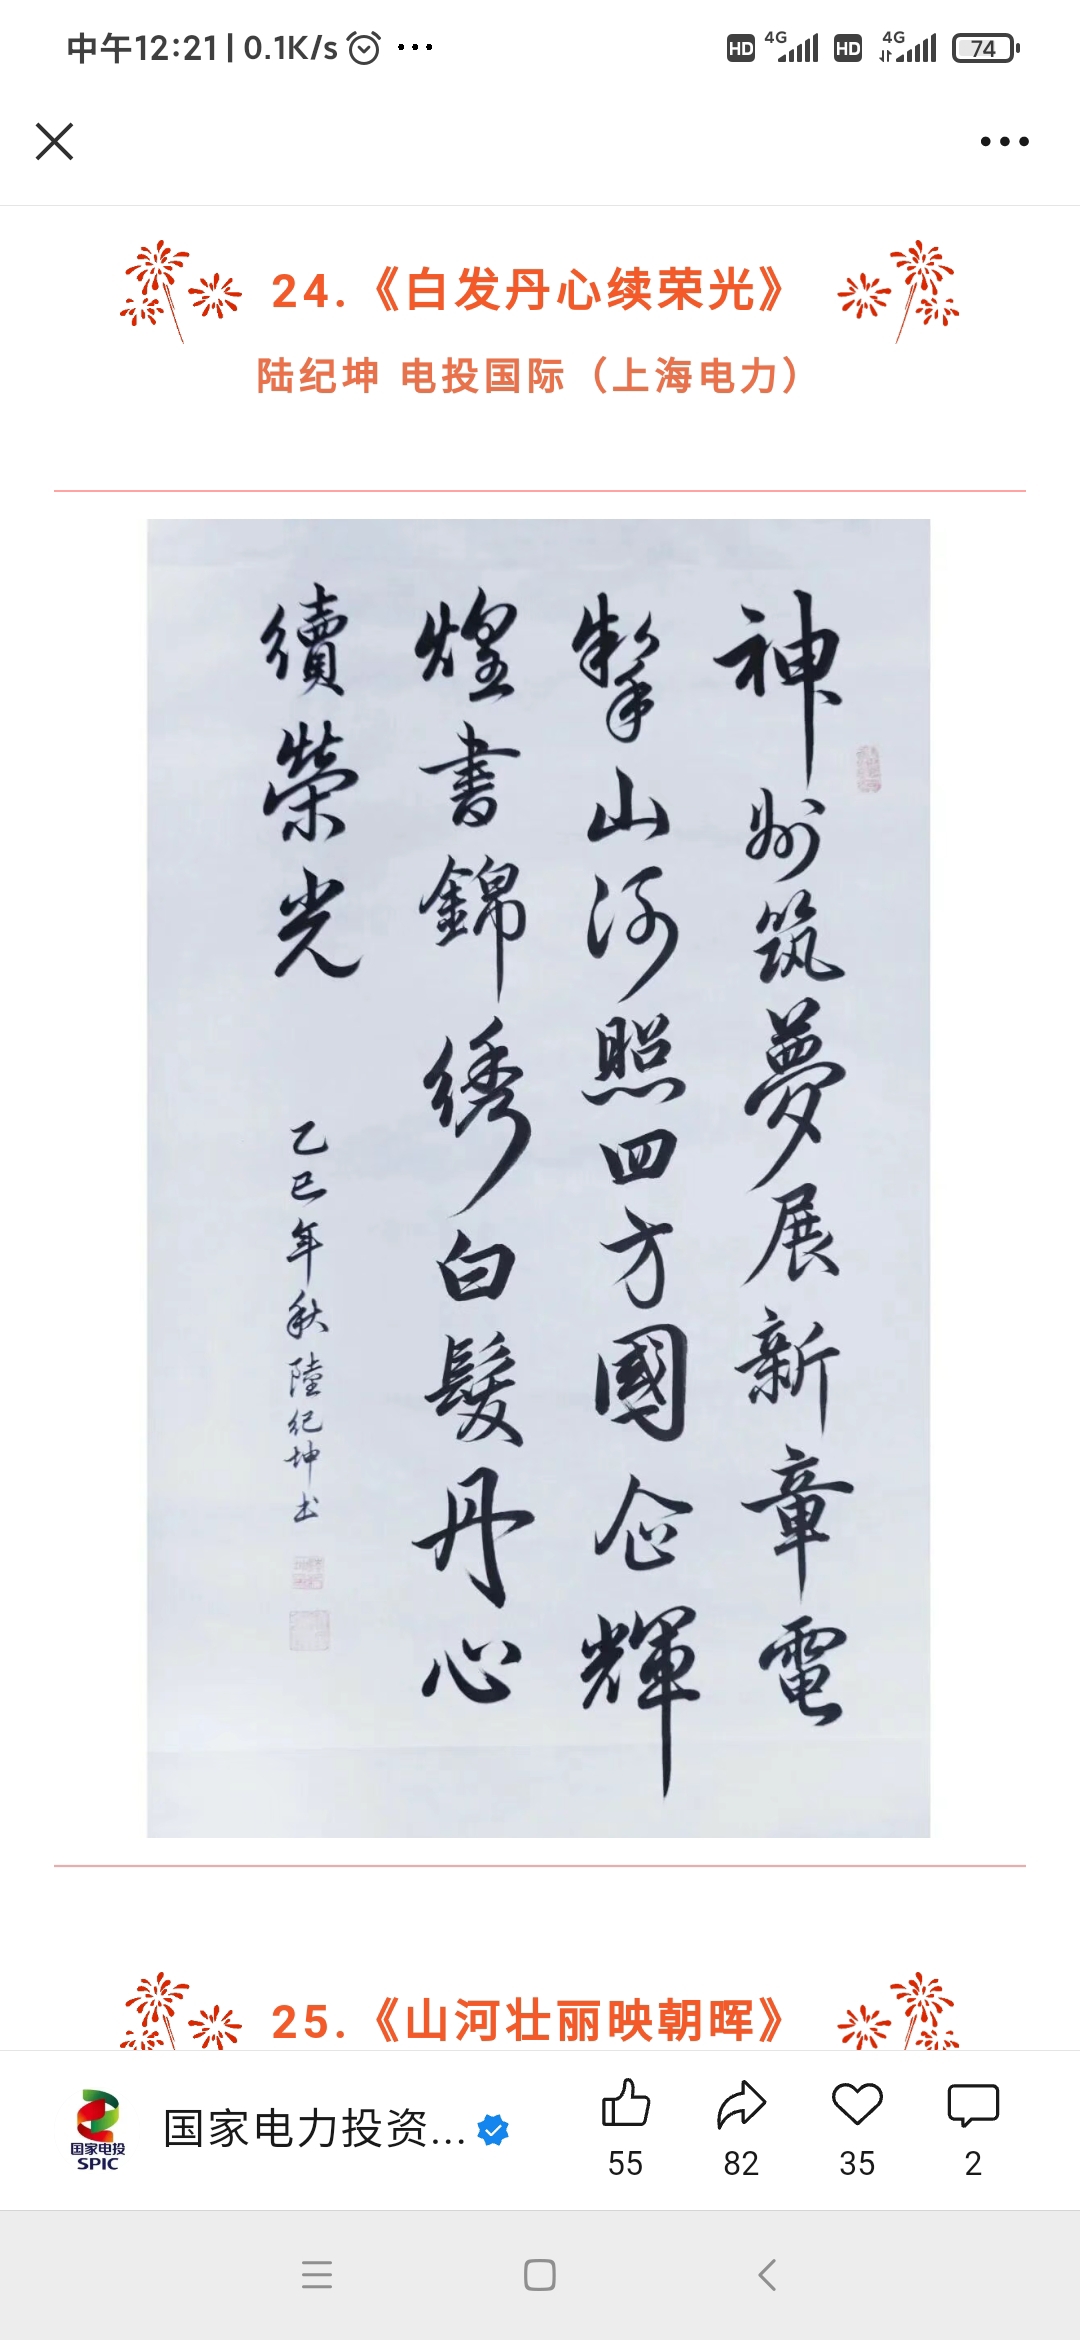 中午12:21 | 0.1K/s ...
HD 4G HD 4G 74
24.《白发丹心续荣光》
陆纪坤 电投国际（上海电力）
神州筑夢展新章電
掣山河照四方國企輝
煌書錦绣白髮丹心
續榮光
乙巳年秋陸纪坤书
25.《山河壮丽映朝晖》
国家电投
SPIC
国家电力投资...
55
82
35
2